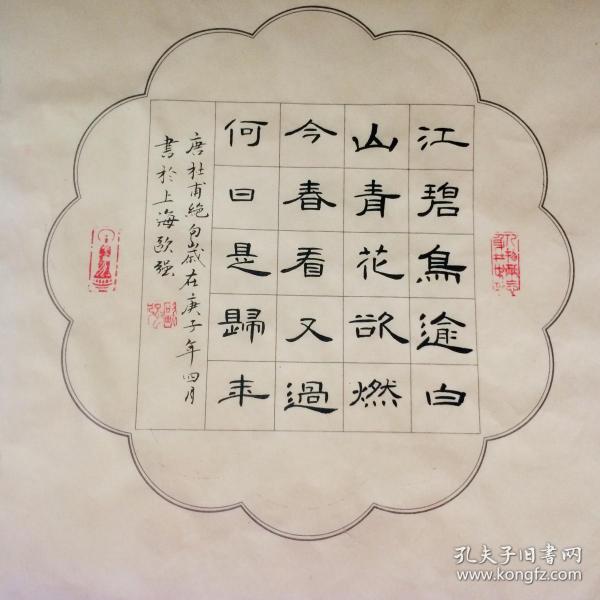 江碧鳥逾白
山青花欲燃
今春看又過
何日是歸年
唐杜甫絕句歲在庚子年四月
書於上海欧强
孔夫子旧書网
www.kongfz.com